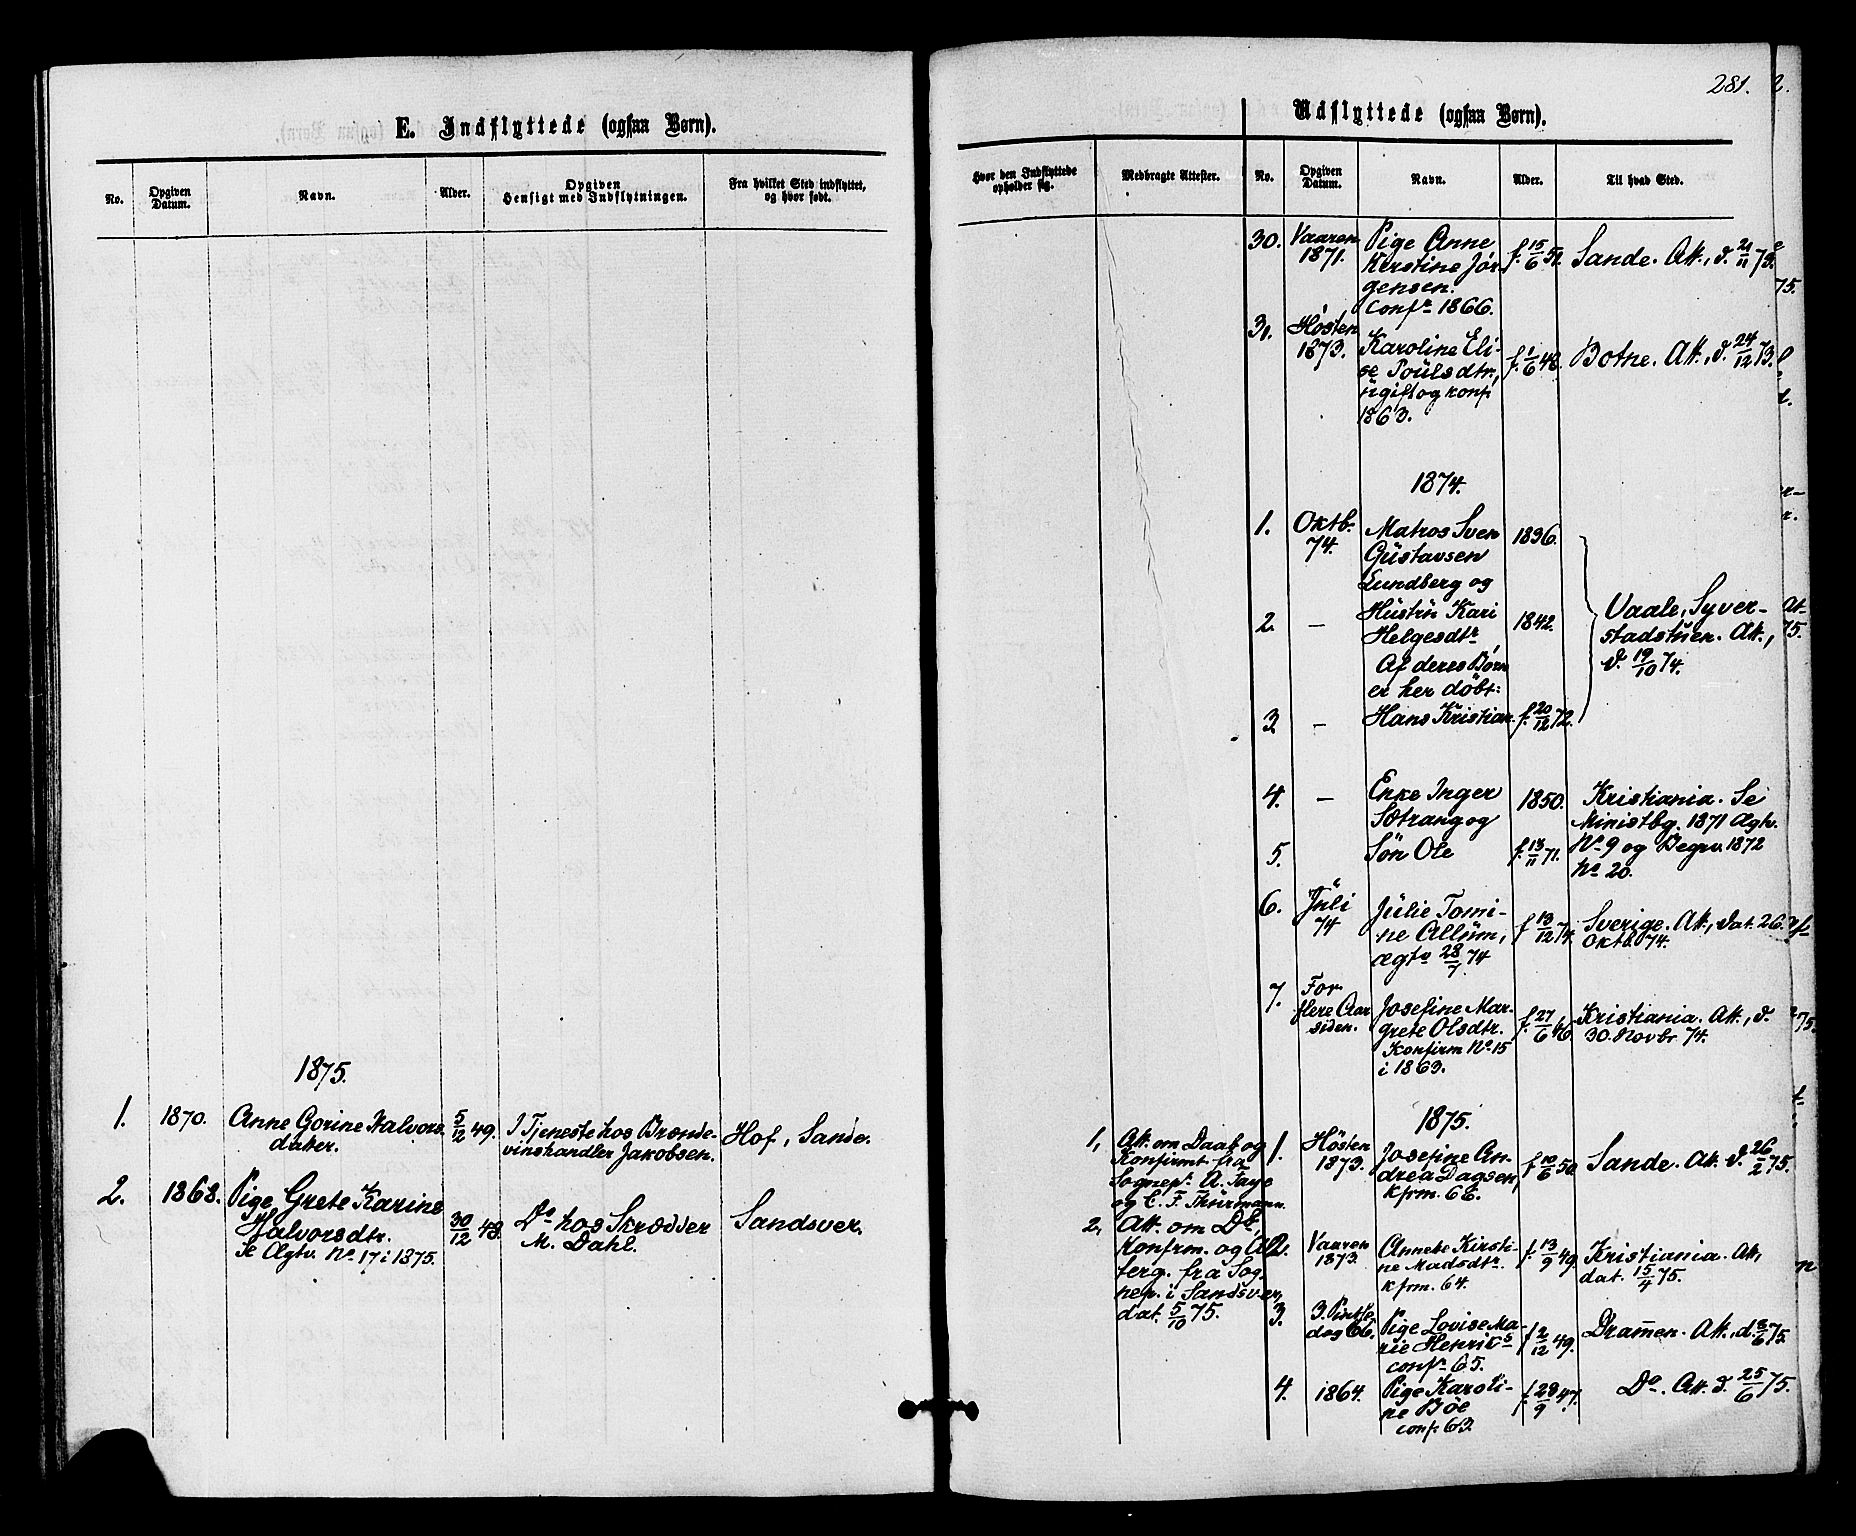 E. Indflyttede (ogsaa Børn).
No.
Opgiven
Datum.
Navn.
Alder.
Opgiven
Hensigt med Indflytningen.
Fra hvilket Sted indflyttet,
og hvor født.
1875.
1.
1870.
Anne Gorine Halvors-
datter.
5/12 49.
I Tjeneste hos Brænde-
vinshandler Jakobsen.
Hof, Sande.
2.
1868.
Pige Grete Karine
Halvorsdtr.
Se Ægtv. No 17 i 1875.
30/12 48.
Do hos Skrædder
M. Dahl.
Sandsver.
281.
Udflyttede (ogsaa Børn).
Hvor den Indflyttede
opholder sig.
Medbragte Attester.
No.
Opgiven
Datum.
Navn.
Alder.
Til hvad Sted.
30.
Vaaren
1871.
Pige Anne
Kerstine Jör-
gensen.
Confr 1866.
f. 15/6 51.
Sande. Att., d. 21/11 73.
31.
Hösten
1873.
Karoline Eli-
se Poulsdtr,
ugift og konf
1863.
f. 1/6 48.
Botne. Att., d. 24/12 73.
1874.
1.
Oktb.
74.
Matros Sven
Gustavsen
Lundberg og
1836.
2.
–
Hustru Kari
Helgesdtr
Af deres Börn
er her döbt:
1842.
Vaale, Syver-
stadstuen. Att.,
d. 19/10 74.
3.
–
Hans Kristian
f. 20/12 72.
4.
–
Enke Inger
Sætrang og
1850.
Kristiania. Se
Ministbg. 1871 Ægtv.
No 9 og Begrv. 1872
No 20.
5.
Sön Ole
f. 13/11 71.
6.
Juli
74
Julie Tomi-
ne Allum,
ægtv 28/7 74
f 13/12 74.
Sverige. Att., dat. 26.
Oktb. 74.
7.
For
flere Aar
siden.
Josefine Mar-
grete Olsdtr.
Konfirm No 15
i 1863.
f. 27/6 46.
Kristiania. Att., d.
30. Novbr 74.
1875.
1,
Att. om Daab og
Konfirmt. fra
Sognepr. A. Faye
og C. F. Thürmann.
1.
Hösten
1873.
Josefine An-
drea Dagsen,
kfrm. 66.
f 10/6 50.
Sande. Att. d. 26/2 75.
2,
Att. om Db,
Konfrm. og
berg. fra Sog-
nep. i Sandsver,
dat. 5/10 75.
2.
Vaaren
1873.
Annete Kirsti-
ne Madsdtr.
kfrm. 64.
f. 13/9 49.
Kristiania. Att,
dat. 15/4 75.
3.
3. Pintse
dag 66.
Pige Lovise Ma-
rie Henriks
confr 65.
f 2/12 49.
Dramen. Att., d. 8/6 75.
4.
1864.
Pige Karoli-
ne Böe
conf. 63.
f. 28/9 47.
Do. Att. d. 25/6 75.